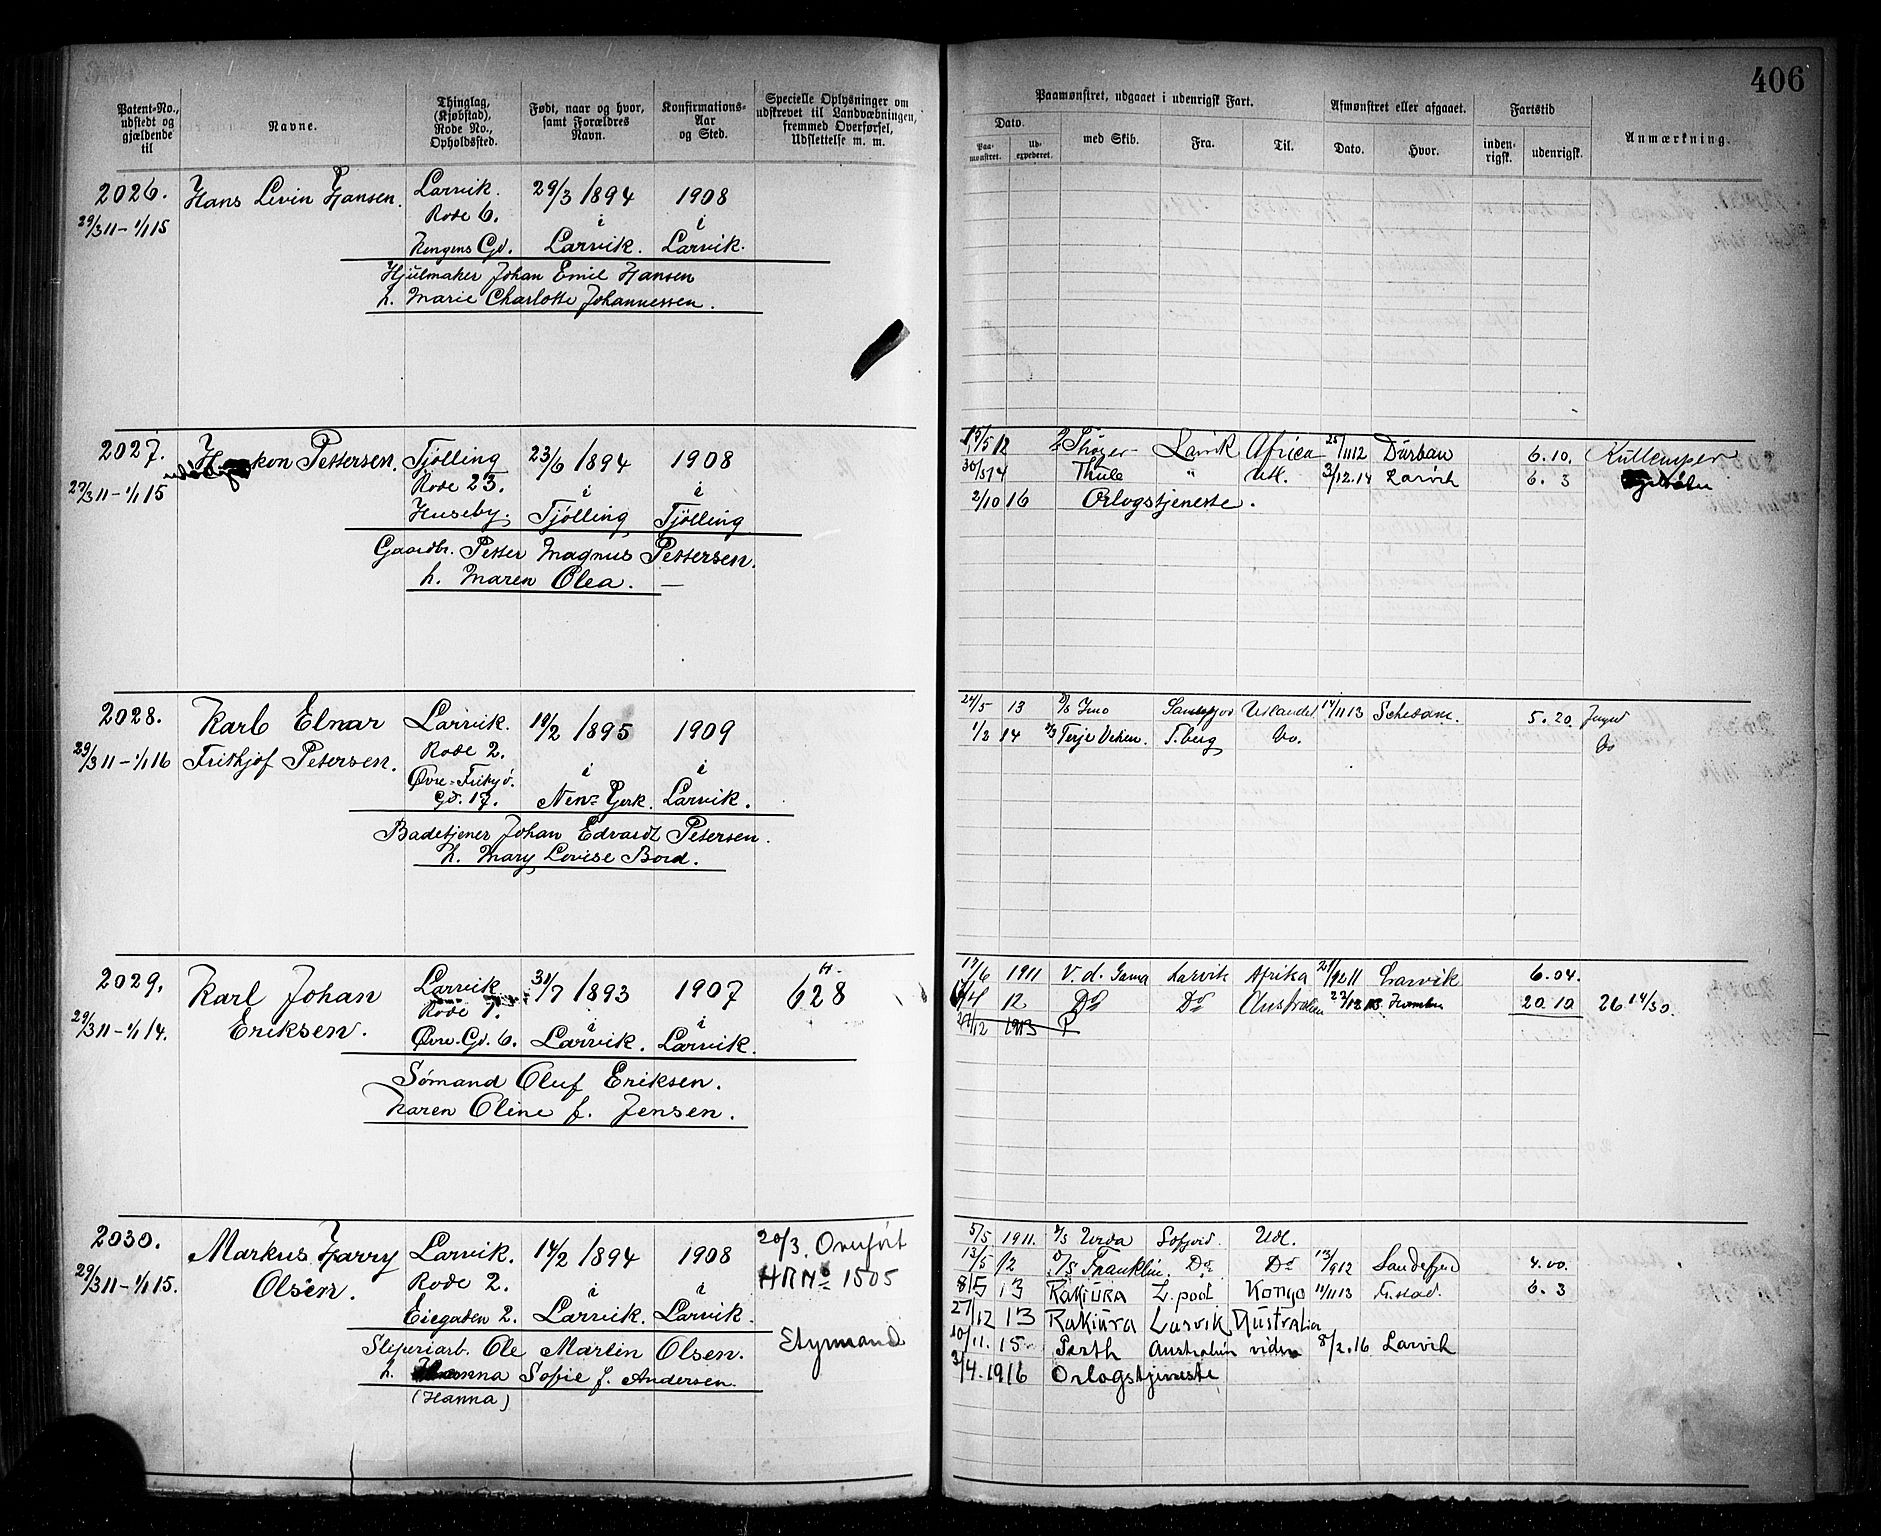 406
Patent-No., udstedt og gjældende til
Navne.
Thinglag, (Kjøbstad), Rode No., Opholdssted.
Født, naar og hvor, samt Forældres Navn.
Konfirmations-Aar og Sted.
Specielle Oplysninger om udskrevet til Landvæbningen, fremmed Overførsel, Udslettelse m. m.
Paamønstret, udgaaet i udenrigsk Fart.
Afmønstret eller afgaaet.
Fartstid
Dato.
Paa-mønstret.
Ud-expederet.
med Skib.
Fra.
Til.
Dato.
Hvor.
inden-rigsk.
udenrigsk.
Anmærkning.
2026. Hans Levin Hansen. Larvik. 29/3 1894 1908
29/3 11 – 1/1 15 Rode 6. i i
Kongens Gd. Larvik. Larvik.
Hjulmaker Johan Emil Hansen
h. Marie Charlotte Johannessen.
2027. Haakon Pettersen. Tjölling 23/6 1894 1908
29/3 11 – 1/1 15 Rode 23. i i
Huseby. Tjölling Tjölling
Gaardbr. Petter Magnus Pettersen.
h. Maren Olea. —
15/5 12 Thöger Larvik Africa 25/11 12 Durban 6. 10.
30/5 14 Thule " Utl. 3/12. 14 Larvik 6. 3
2/10 16 Orlogstjeneste.
2028. Karl Einar Larvik. 10/2 1895 1909
29/3 11 – 1/1 16 Frithjof Petersen. Rode 2. i i
Øvre-Fritzjö.
Gd. 17. New-York. Larvik.
Badetjener Johan Edvardt Petersen.
h. Mary Lovise Bord.
24/5 13 Juno Sandefjord Utlandet 14/11 13 Schedam. 5. 20. Jungm
1/2 14 Terje Viken. T.berg Do. Do
2029. Karl Johan Larvik 31/7 1893 1907 628
29/3 11 – 1/1 14. Eriksen. Rode 7. i i
Øvre-Gd. 6. Larvik. Larvik.
Sömand Oluf Eriksen.
Karen Oline f. Jensen.
17/6 1911 V. d. Gama Larvik Afrika Larvik 6.04.
12 Do Do Australien 20.10 26 14/30.
27/12 1913
2030. Markus Harry Larvik. 14/2 1894 1908 20/3. Overfört
29/3 11 – 1/1 15. Olsen. Rode 2. i i HR No 1505
Eiegaden 2. Larvik. Larvik.
Sliperiarb. Ole Martin Olsen. Styrmand
h. Hanna Sofie f. Andersen.
(Hanna)
5/5 1911. Urda Utl.
13/5 12 D/S Franklin Do Do 13/9 12 Sandefjord 4.00.
8/5 13 Rakiura L. pool Kongo 11/11 13 6. 3
27/12 13 Rakiura Larvik Australia
10/11. 15 Perth Australien viden 8/2. 16 Larvik
3/4. 1916 Orlogstjeneste